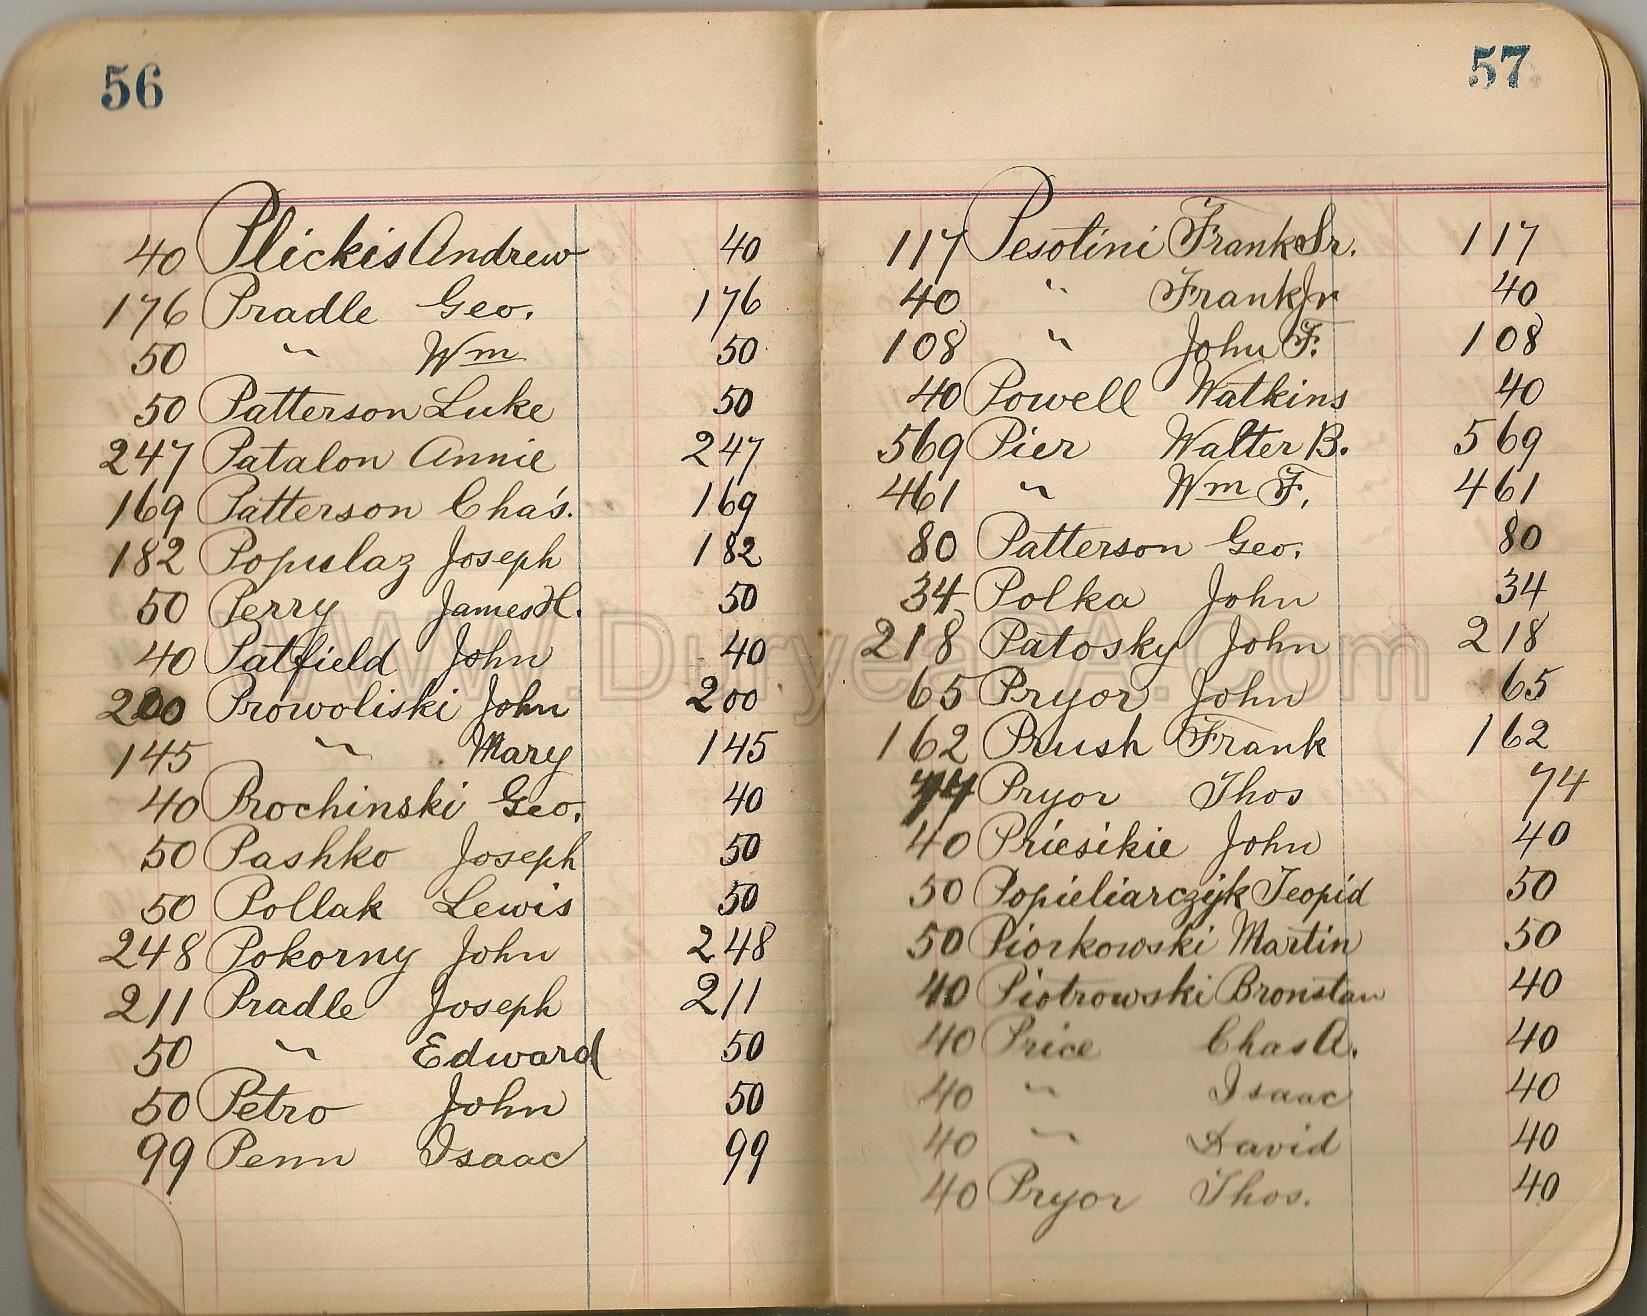 56
40 Plickis Andrew 40
176 Pradle Geo. 176
50 " Wm 50
50 Patterson Luke 50
247 Patalon Annie 247
169 Patterson Cha's. 169
182 Populaz Joseph 182
50 Perry James H. 50
40 Patfield John 40
200 Prowoliski John 200
145 " Mary 145
40 Prochinski Geo. 40
50 Pashko Joseph 50
50 Pollak Lewis 50
248 Pokorny John 248
211 Pradle Joseph 211
50 " Edward 50
50 Petro John 50
99 Penn Isaac 99
57
117 Pesolini Frank Sr. 117
40 " Frank Jr 40
108 " John F. 108
40 Powell Watkins 40
569 Pier Walter B. 569
461 " Wm F. 461
80 Patterson Geo. 80
34 Polka John 34
218 Patosky John 218
65 Pryor John 65
162 Prush Frank 162
74 Pryor Thos 74
40 Priesikie John 40
50 Popieliarczyk Teopid 50
50 Piorkowski Martin 50
40 Piotrowski Bronstan 40
40 Price Chas A. 40
40 " Isaac 40
40 " David 40
40 Pryor Thos. 40
www.DuryeaPA.Com